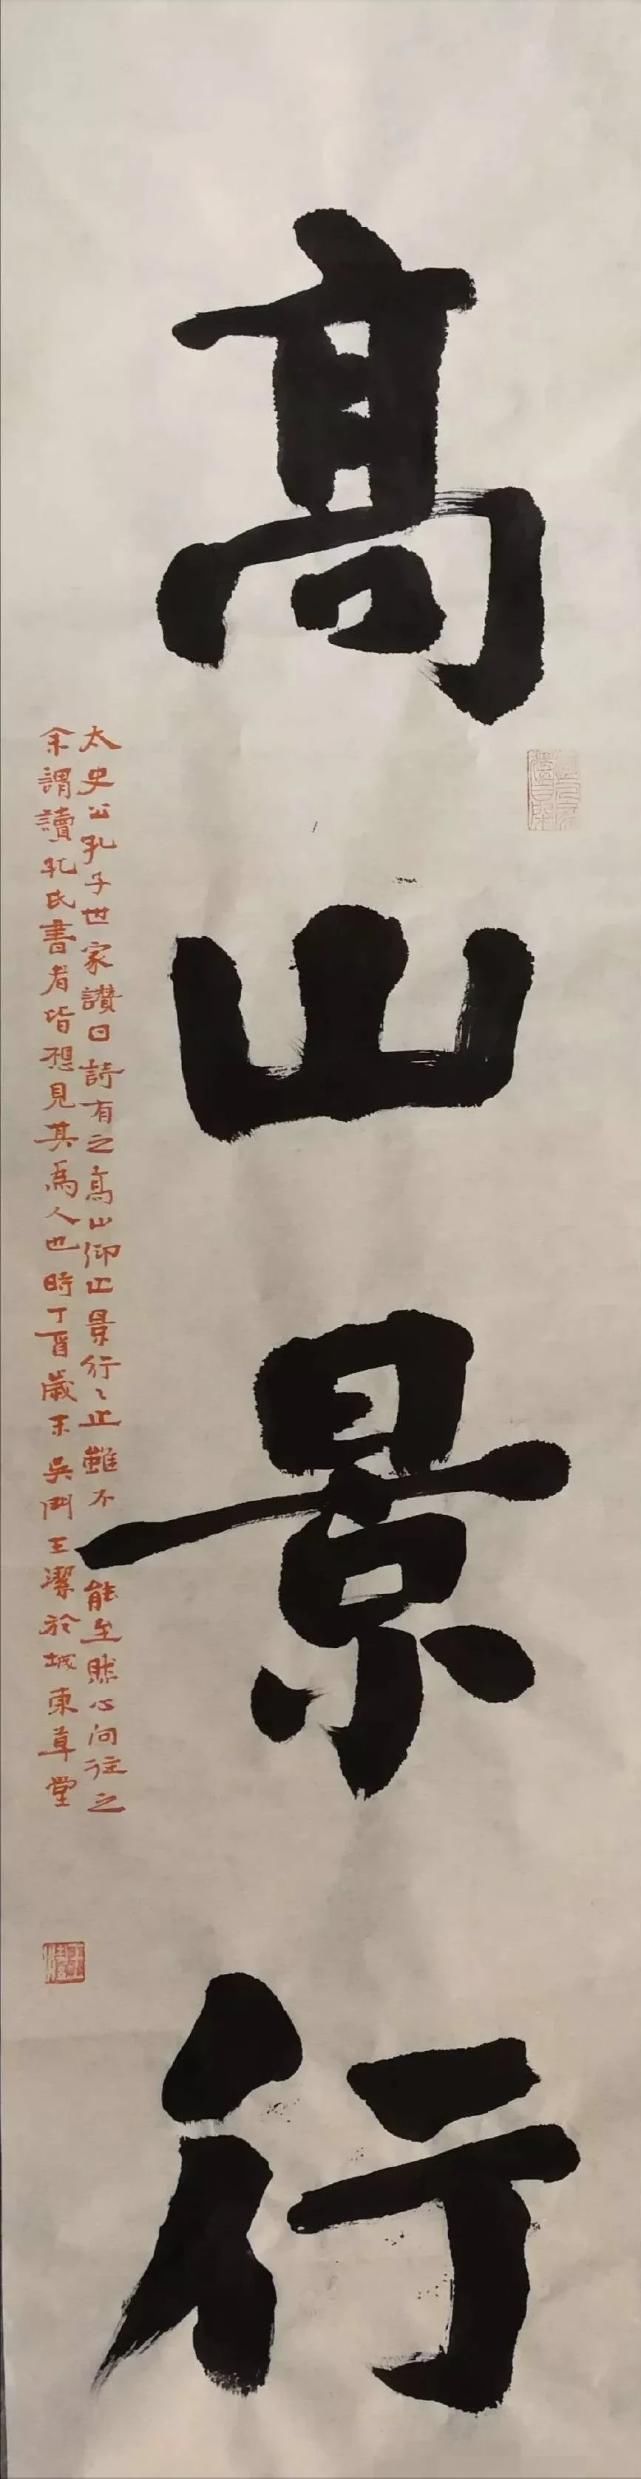 高山景行
太史公孔子世家讃曰詩有之高山仰止景行〻止雖不能至然心向往之
余謂讀孔氏書者皆想見其為人也時丁酉歲末吳門王潔於城東草堂